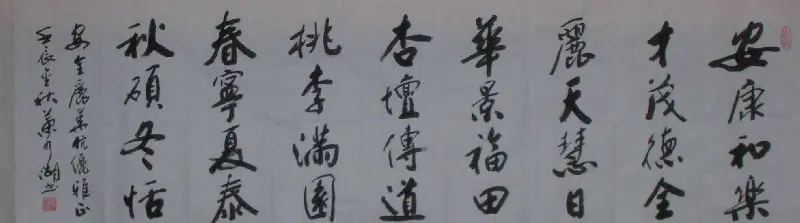 安康和樂
才茂德全
麗天慧日
華景福田
杏壇傳道
桃李滿園
春寧夏泰
秋碩冬恬
安全麗華伉儷雅正
壬辰金秋